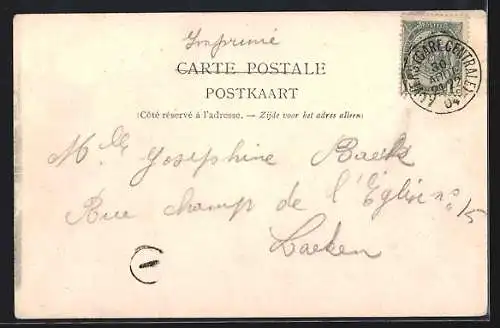 Imprimé
CARTE POSTALE
POSTKAART
(Côté réservé à l'adresse. — Zijde voor het adres alleen)
Mlle Josephine Baets
Rue Champ de l'Église no 15
Laeken
ANVERS (GARE CENTRALE)
30
04
1